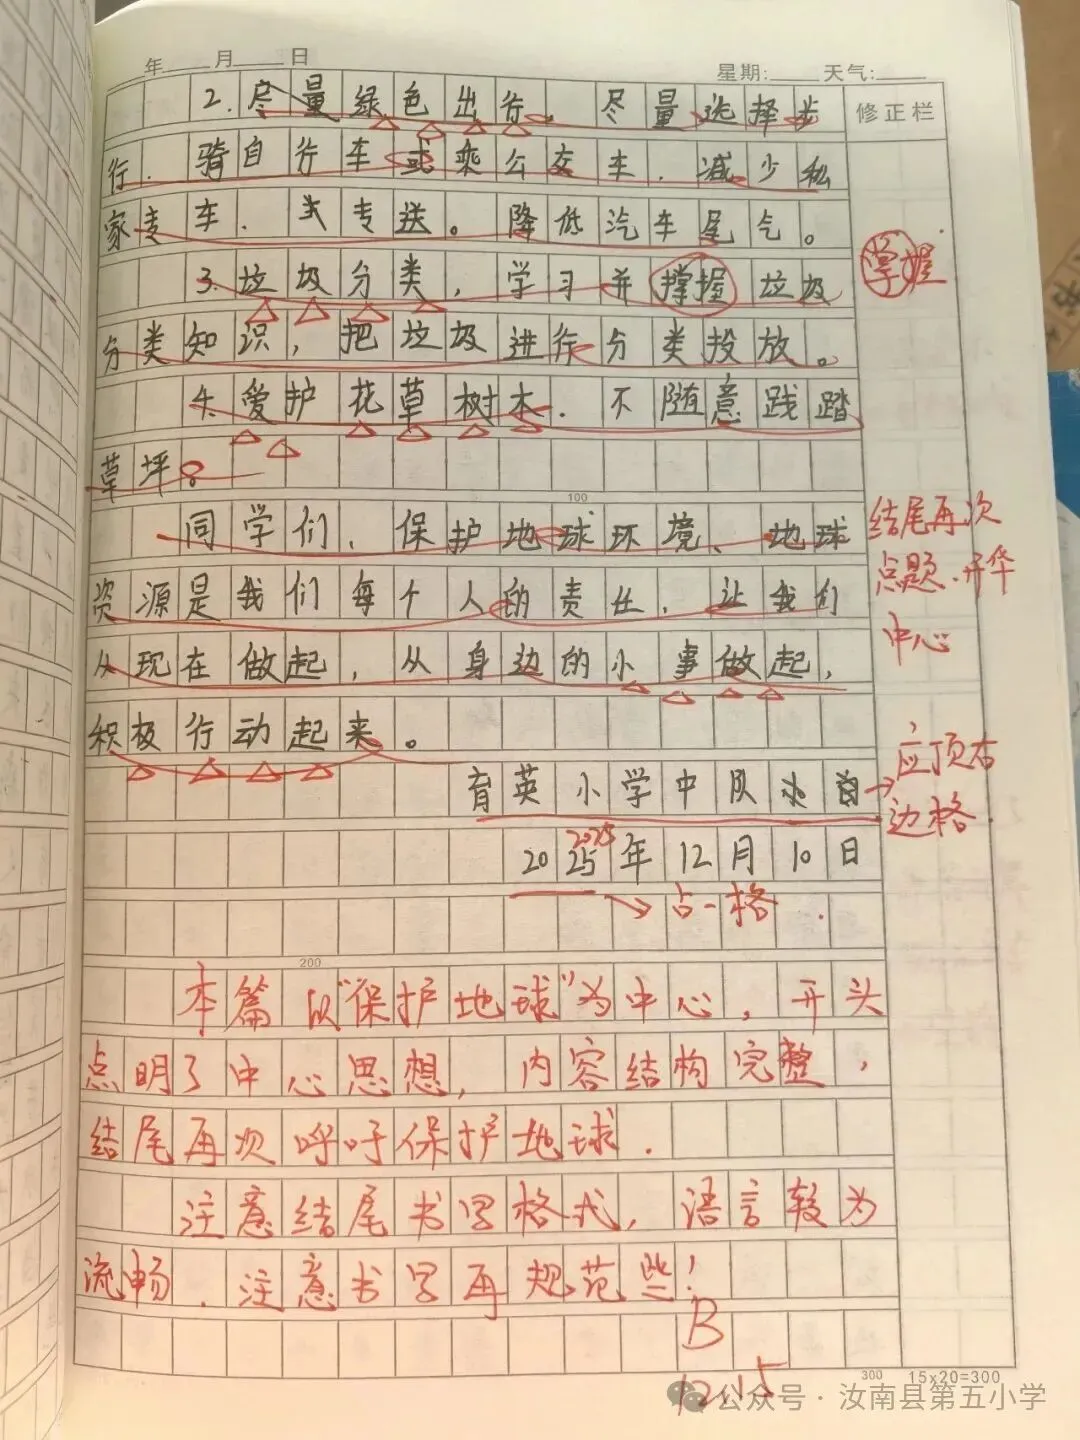 年 月 日 星期: 天气:
修正栏
2.尽量绿色出行。尽量选择步
行.骑自行车或乘公交车.减少私
家专车. 专送。降低汽车尾气。
3.垃圾分类,学习并撑握垃圾
掌握
分类知识,把垃圾进行分类投放。
4.爱护花草树木.不随意践踏
草坪。
100
同学们、保护地球环境、地球
结尾再次
点题.升华
中心
资源是我们每个人的责任.让我们
从现在做起,从身边的小事做起,
积极行动起来。
育英小学中队
应顶右
边格.
2025
2025年12月10日
占一格.
200
本篇以"保护地球"为中心,开头
点明了中心思想,内容结构完整,
结尾再次呼吁保护地球.
注意结尾书写格式,语言较为
流畅.注意书写再规范些!
B
12.15
300 15x20=300
公众号·汝南县第五小学